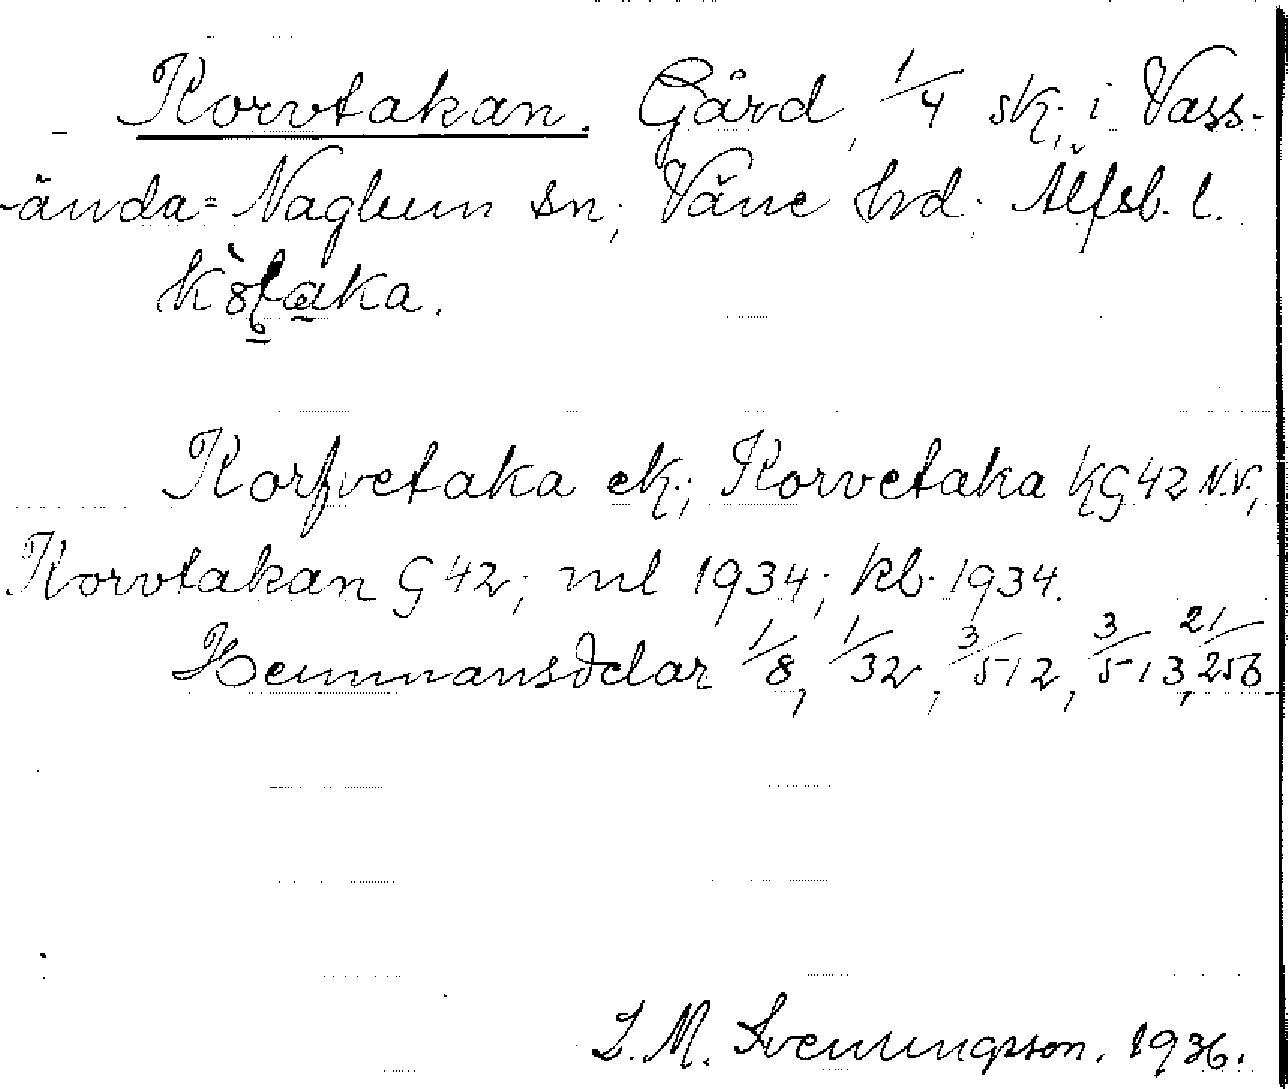 Korvtakan. Gård, 1/4 sk; i Vass-
ända-Naglum sn; Väne hrd; Älfsb. l.
Korfvetaka ek; Korvetaka KG 42 N.V;
Korvtakan G 42; ml 1934; kb. 1934.
Hemmansdelar 1/8, 1/32, 3/512, 3/513, 21/256
J. M. Svenningsson. 1936.